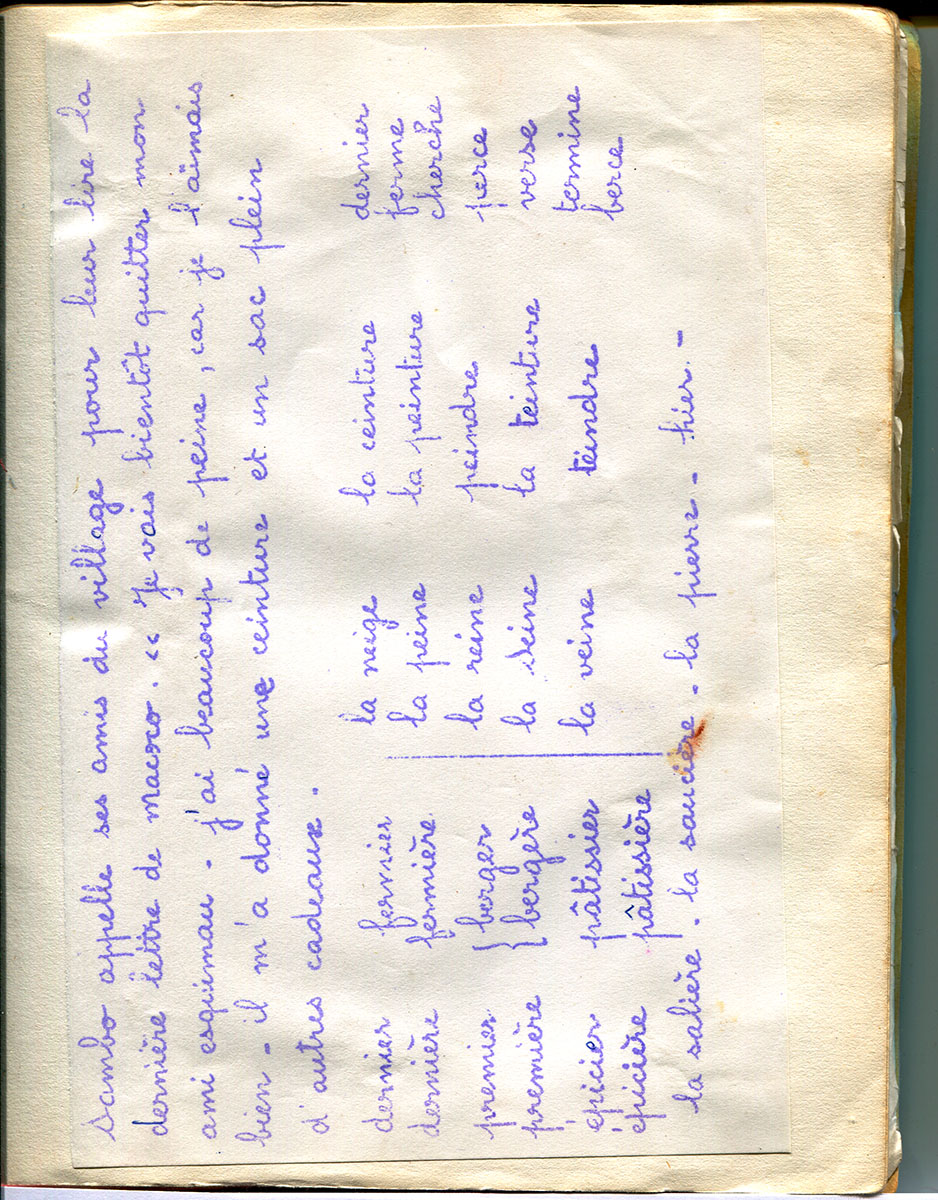 Sambo appelle ses amis du village pour leur lire la
dernière lettre de Macoco. << Je vais bientôt quitter mon
ami esquimau - j'ai beaucoup de peine, car je l'aimais
bien - il m'a donné une ceinture et un sac plein
d'autres cadeaux.
dernier fermier la neige la ceinture dernier
dernière fermière la peine la peinture ferme
cherche
premier { berger la reine peindre perce
première { bergère la Seine la teinture verse
épicier pâtissier la veine teindre termine
épicière pâtissière berce
la salière. la saucière. la pierre - hier. -